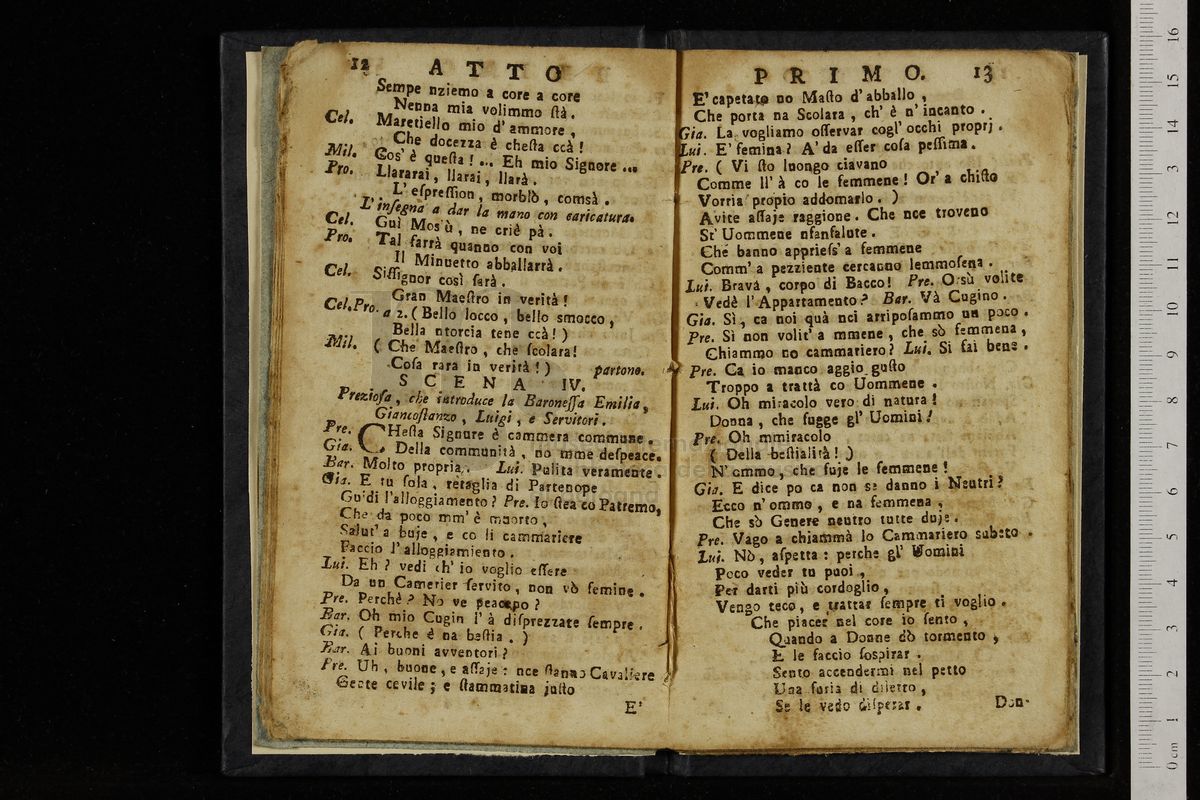 12 ATTO
Sempe nziemo a core a core
Nenna mia volimmo ſtà.
Cel. Maretiello mio d'ammore,
Che docezza è cheſta ccà!
Mil. Cos' è queſta!... Eh mio Signore...
Pro. Llararai, llarai, llarà.
L'eſpreſſion, morblò, comsà.
L'inſegna a dar la mano con caricatura.
Cel. Guì Mosù, ne criè pà.
Pro. Tal farrà quanno con voi
Il Minuetto abballarrà.
Cel. Siſſignor così farà.
Gran Maeſtro in verità!
Cel. Pro. a 2. (Bello locco, bello smocco,
Bella ntorcia tene ccà!)
Mil. (Che Maeſtro, che ſcolara!
Coſa rara in verità!) partono.
SCENA IV.
Prezioſa, che introduce la Baroneſſa Emilia,
Giancoſtanzo, Luigi, e Servitori.
Pre. CHeſta Signure è cammera commune.
Gia. Della communità, no mme deſpeace.
Bar. Molto propria. Lui. Pulita veramente.
Gia. E tu ſola, retaglia di Partenope
Guidi l'alloggiamento? Pre. Io ſtea co Patremo,
Che da poco mm' è muorto,
Salut' a buje, e co li cammariere
Faccio l'alloggiamiento.
Lui. Eh? vedi ch' io voglio eſſere
Da un Camerier ſervito, non vò femine.
Pre. Perchè? No ve peaceno?
Bar. Oh mio Cugin l' à diſprezzate ſempre.
Gia. (Perche è na beſtia.)
Bar. Ai buoni avventori?
Pre. Uh, buone, e aſſaje: nce ſtanno Cavaliere
Gente cevile; e ſtammatina juſto
E'
PRIMO. 13
E' capetato no Maſto d'abballo,
Che porta na Scolara, ch' è n'incanto.
Gia. La vogliamo oſſervar cogl' occhi proprj.
Lui. E' femina? A' da eſſer coſa peſſima.
Pre. (Vi ſto luongo ciavano
Comme ll' à co le femmene! Or' a chiſto
Vorria propio addomarlo.)
Avite aſſaje raggione. Che nce troveno
St' Uommene nfanfalute.
Ché banno apprieſs' a femmene
Comm' a pezziente cercanno lemmoſena.
Lui. Brava, corpo di Bacco! Pre. Orsù volite
Vedè l'Appartamento? Bar. Và Cugino.
Gia. Sì, ca noi quà nci arripoſammo un poco.
Pre. Sì non volit' a mmene, che sò femmena,
Chiammo no cammariero? Lui. Si fai bene.
Pre. Ca io manco aggio guſto
Troppo a trattà co Uommene.
Lui. Oh miracolo vero di natura!
Donna, che fugge gl' Uomini!
Pre. Oh mmiracolo
(Della beſtialità!)
N' ommo, che fuje le femmene!
Gia. E dice po ca non se danno i Neutri?
Ecco n' ommo, e na femmena,
Che sò Genere neutro tutte duje.
Pre. Vago a chiammà lo Cammariero subeto.
Lui. Nò, aſpetta: perche gl' Uomini
Poco veder tu puoi,
Per darti più cordoglio,
Vengo teco, e trattar ſempre ti voglio.
Che piacer nel core io ſento,
Quando a Donne dò tormento,
E le faccio ſoſpirar.
Sento accendermi nel petto
Una furia di diletto,
Se le vedo diſperar. Don-